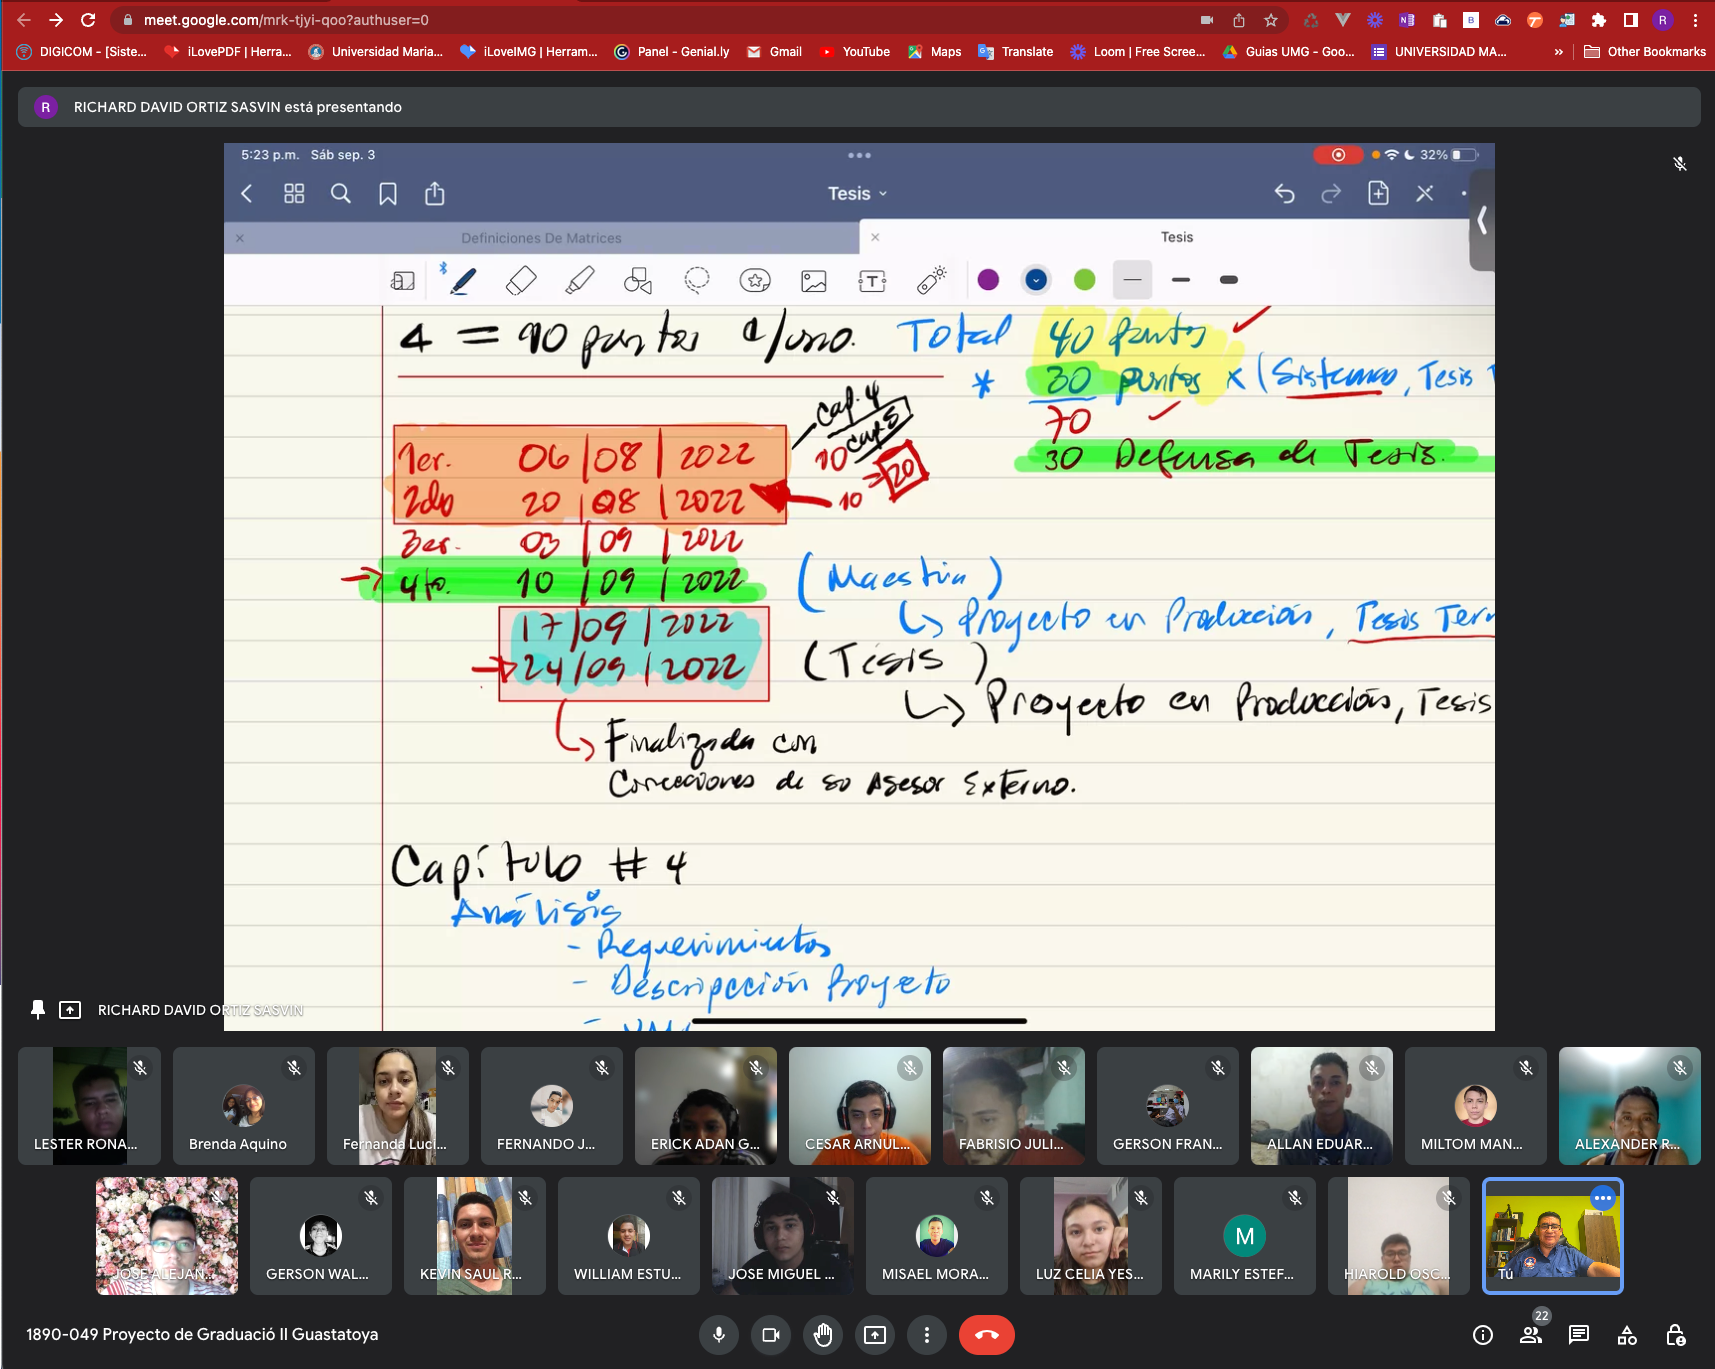 meet.google.com/mrk-tjyi-qoo?authuser=0
DIGICOM - [Siste... iLovePDF | Herra... Universidad Maria... iLoveIMG | Herram... Panel - Genial.ly Gmail YouTube Maps Translate Loom | Free Scree... Guias UMG - Goo... UNIVERSIDAD MA... » Other Bookmarks
R RICHARD DAVID ORTIZ SASVIN está presentando
5:23 p.m. Sáb sep. 3 32%
Tesis
Definiciones De Matrices Tesis
4 = 10 puntos c/uno. Total 40 puntos
* 30 puntos x (Sistemas, Tesis T
70
30 Defensa de Tesis.
Cap. 4
Cap 5
10 = 20
10
1er. 06 | 08 | 2022
2do 20 | 08 | 2022
3er. 03 | 09 | 2022
4to. 10 | 09 | 2022
17 | 09 | 2022
24 | 09 | 2022
(Maestria)
Proyecto en Producción, Tesis Term
(Tesis)
Proyecto en Producción, Tesis
Finalizada con
Correcciones de su Asesor Externo.
Capítulo # 4
Análisis
- Requerimientos
- Descripción Proyecto
RICHARD DAVID ORTIZ SASVIN
LESTER RONA... Brenda Aquino Fernanda Luci... FERNANDO J... ERICK ADAN G... CESAR ARNUL... FABRISIO JULI... GERSON FRAN... ALLAN EDUAR... MILTOM MAN... ALEXANDER R...
JOSE ALEJAN... GERSON WAL... KEVIN SAUL R... WILLIAM ESTU... JOSE MIGUEL ... MISAEL MORA... LUZ CELIA YES... M MARILY ESTEF... HIAROLD OSC... Tú
1890-049 Proyecto de Graduació II Guastatoya 22